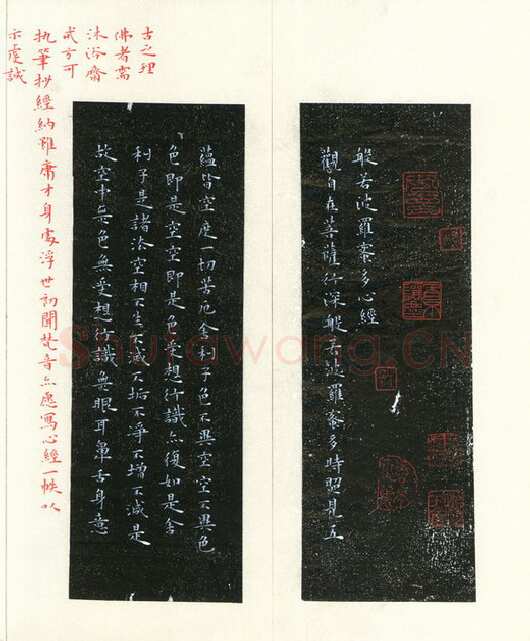 般若波羅蜜多心經
觀自在菩薩行深般若波羅蜜多時照見五
蘊皆空度一切苦厄舍利子色不異空空不異色
色即是空空即是色受想行識亦復如是舍
利子是諸法空相不生不滅不垢不淨不增不減是
故空中無色無受想行識無眼耳鼻舌身意
古之理
佛者需
沐浴齋
戒方可
执筆抄經納雖庸才身處浮世初聞梵音亦愿寫心經一帙以
示虔誠
Shufawang.CN